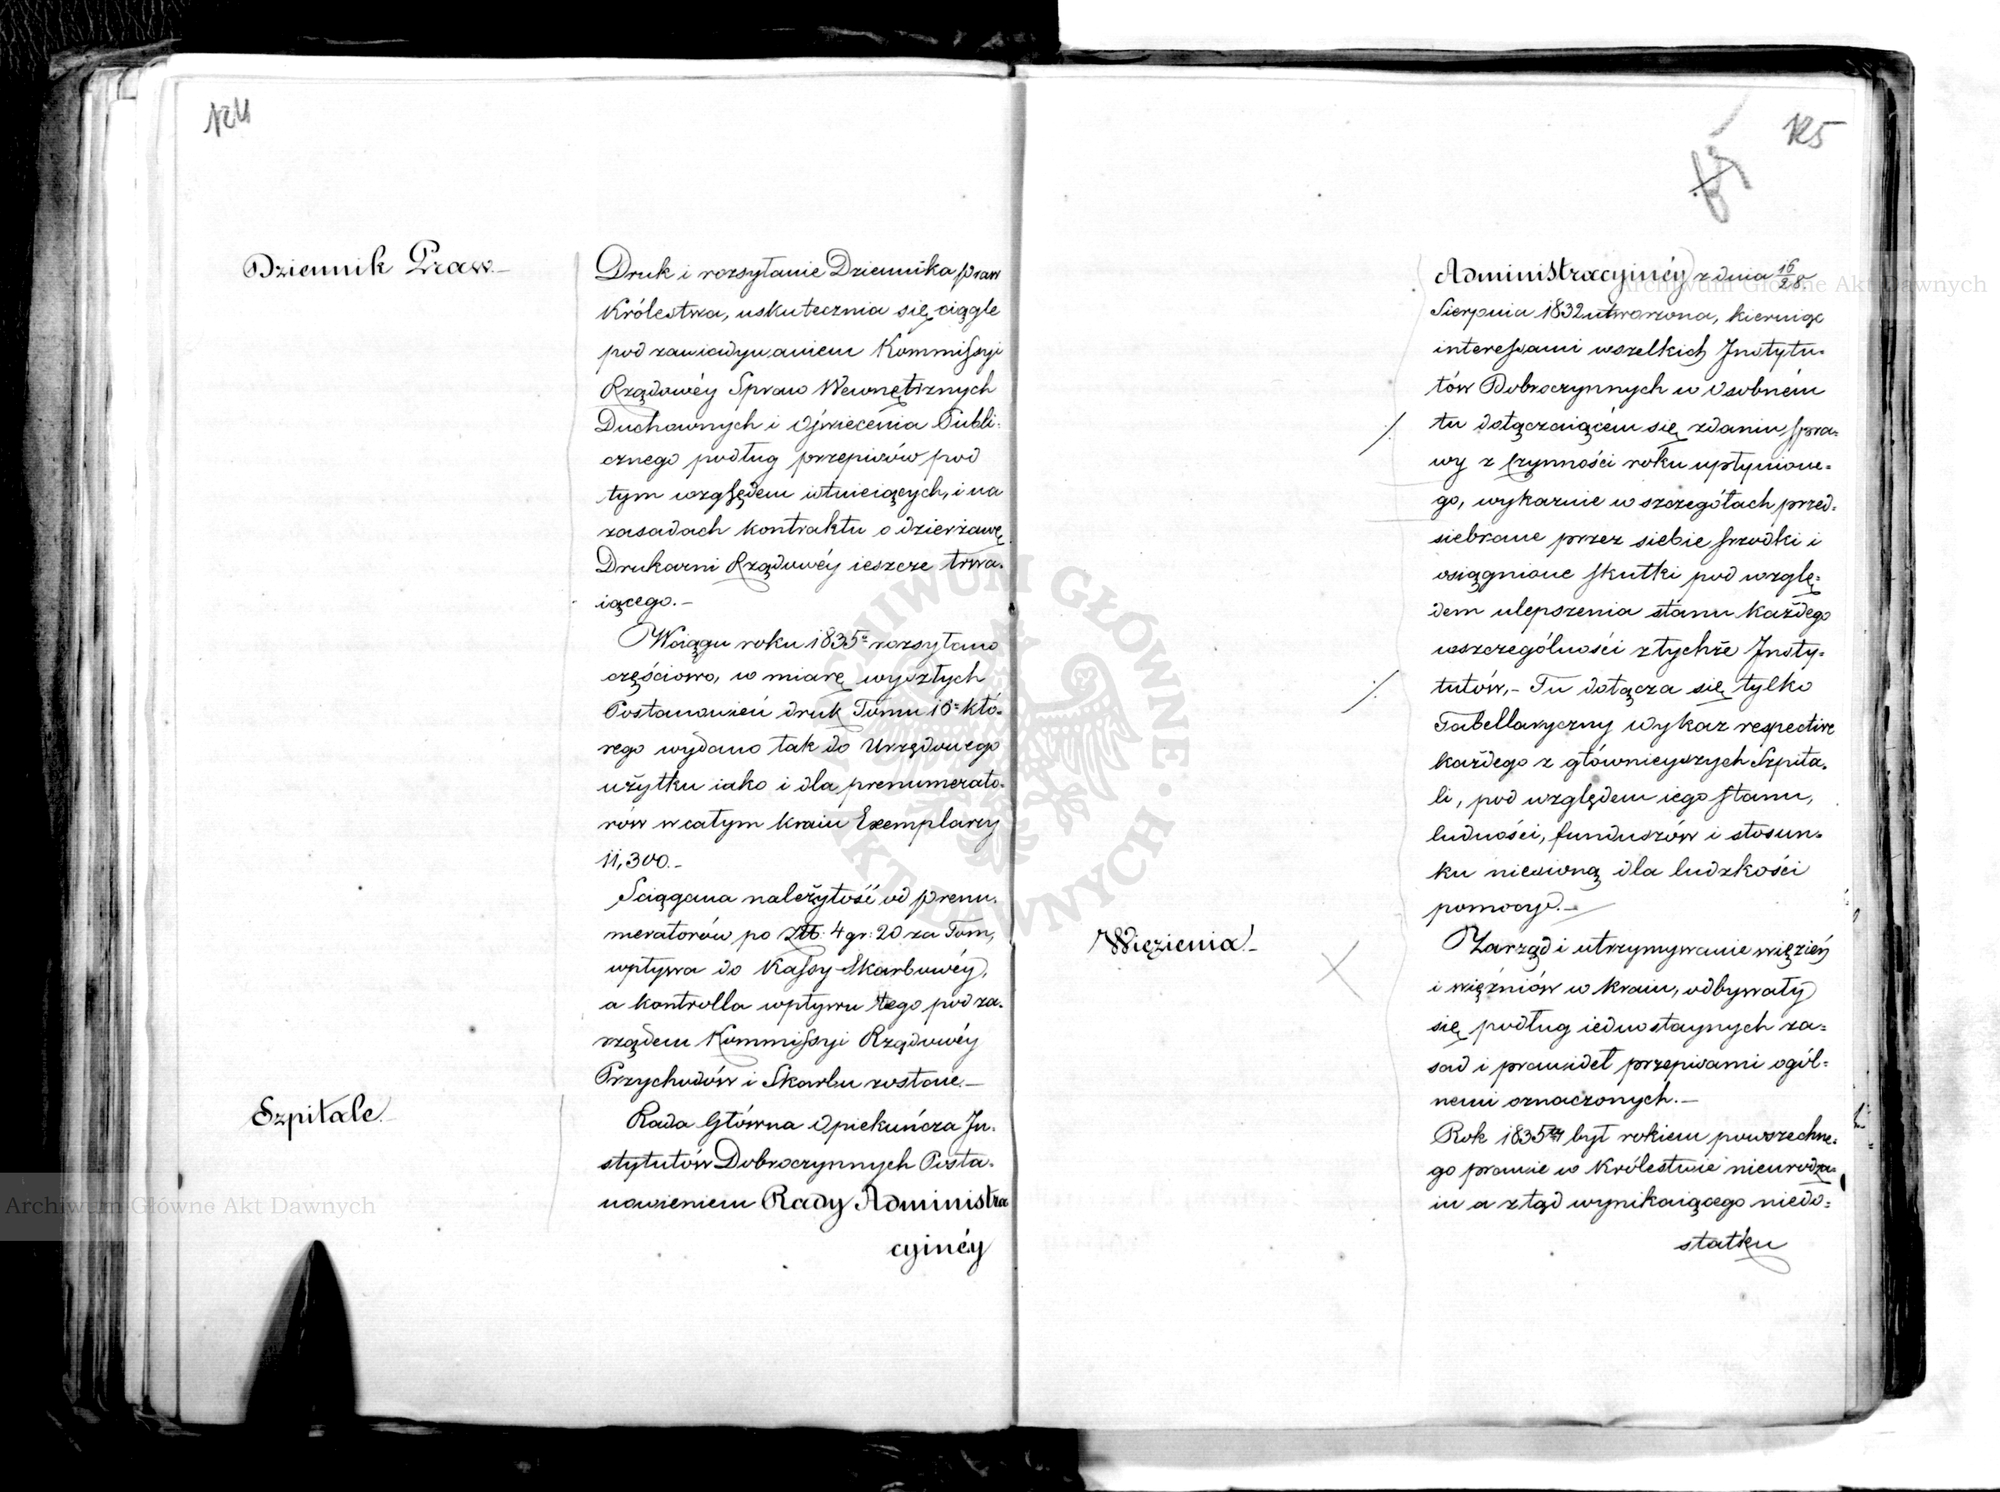 124
Dziennik Praw.—
Druk i rozsyłanie Dziennika praw
Królestwa, uskutecznia się ciągle
pod zawiadywaniem Kommissyi
Rządowéy Spraw Wewnętrznych
Duchownych i Oświecenia Publi-
cznego podług przepisów pod
tym względem istnieiących, i na
zasadach kontraktu o dzierżawę
Drukarni Rządowéy ieszcze trwa-
iącego.—
W ciągu roku 1835o rozsyłano
częściowo, w miarę wyszłych
Postanowień druk Tomu 16o któ-
rego wydano tak do Urzędowego
użytku iako i dla prenumerato-
rów w całym kraiu Exemplarzy
11,300.—
Sciągana należytość od prenu-
meratorów po Złt: 4 gr: 20 za Tom,
wpływa do Kassy Skarbowéy,
a kontrolla wpływu tego pod za-
rządem Kommissyi Rządowéy
Przychodów i Skarbu zostaie.—
Szpitale.—
Rada Główna Opiekuńcza In-
stytutów Dobroczynnych Posta-
nowieniem Rady Administra
cyinéy
125
Administracyinéy z dnia 16/28o
Sierpnia 1832 utworzona, kieruiąc
interessami wszelkich Instytu-
tów Dobroczynnych w Osobném
tu dołączaiącém się zdaniu spra-
wy z czynności roku upłynione-
go, wykazuie w szczegółach przed-
siebrane przez siebie srzodki i
osiągnione skutki pod wzglę-
dem ulepszenia stanu każdego
wszczególności z tychże Insty-
tutów,— Tu dołącza się tylko
Tabellaryczny wykaz respective
każdego z główneyszych Szpita-
li, pod względem iego stanu,
ludności, funduszów i stosun-
ku niesioną dla ludzkości
pomocy.—
Więzienia.—
Zarząd i utrzymywanie więzień
i więźniów w kraiu, odbywały
się podług iednostaynych za-
sad i prawideł przepisami ogól-
nemi oznaczonych.—
Rok 1835ty był rokiem powszechne-
go prawie w Królestwie nieurodza-
iu a ztąd wynikaiącego niedo-
statku
Archiwum Główne Akt Dawnych
Archiwum Główne Akt Dawnych
ARCHIWUM GŁÓWNE AKT DAWNYCH